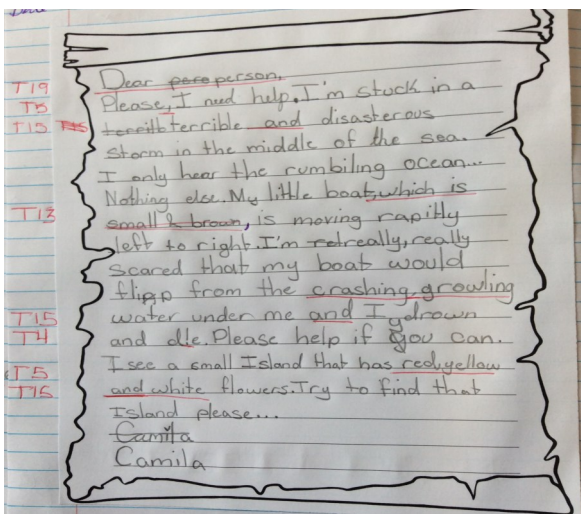 Dear pero person,
T19 Please, I need help. I'm stuck in a
T5
T15 terribl terrible and disasterous
storm in the middle of the sea.
I only hear the rumbiling ocean...
Nothing else. My little boat, which is
T13 small & brown, is moving rapitly
left to right. I'm rel really, really
scared that my boat would
flipp from the crashing, growling
T15 water under me and I drown
T4 and die. Please help if you can.
T5 I see a small Island that has red, yellow
T15 and white flowers. Try to find that
Island please...
Camila
Camila